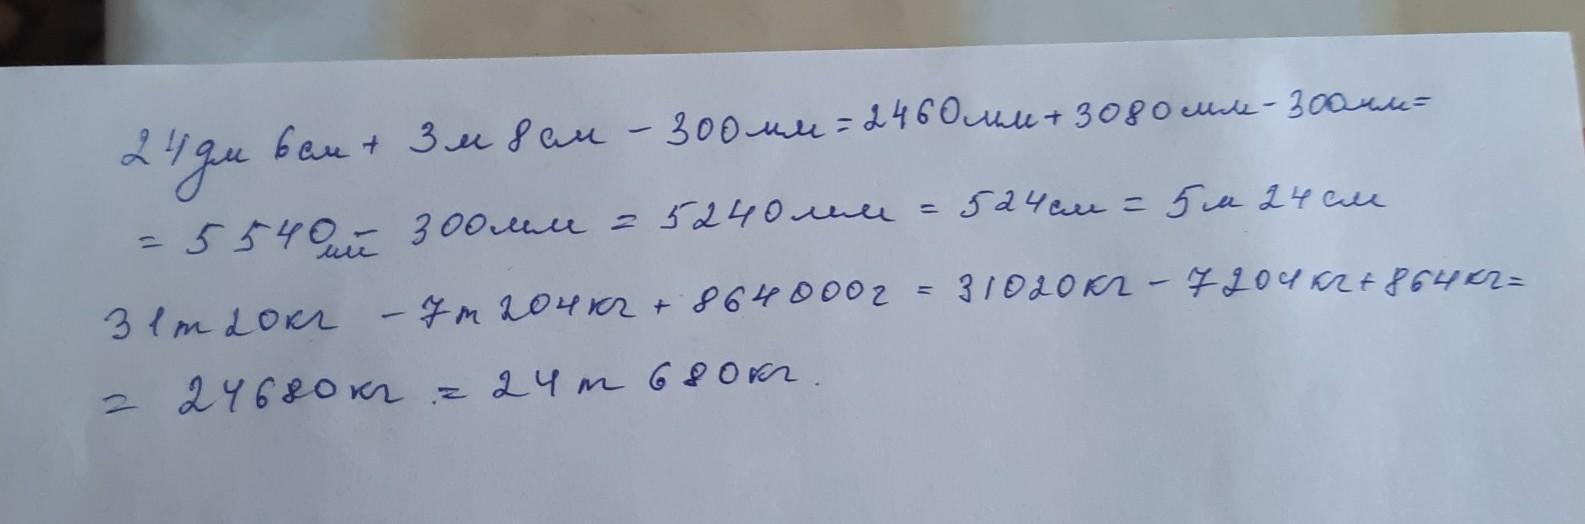 24дм 6см + 3м 8см - 300мм = 2460мм + 3080мм - 300мм =
= 5540мм - 300мм = 5240мм = 524см = 5м 24см
31т 20кг - 7т 204кг + 864000г = 31020кг - 7204кг + 864кг =
= 24680кг = 24т 680кг.